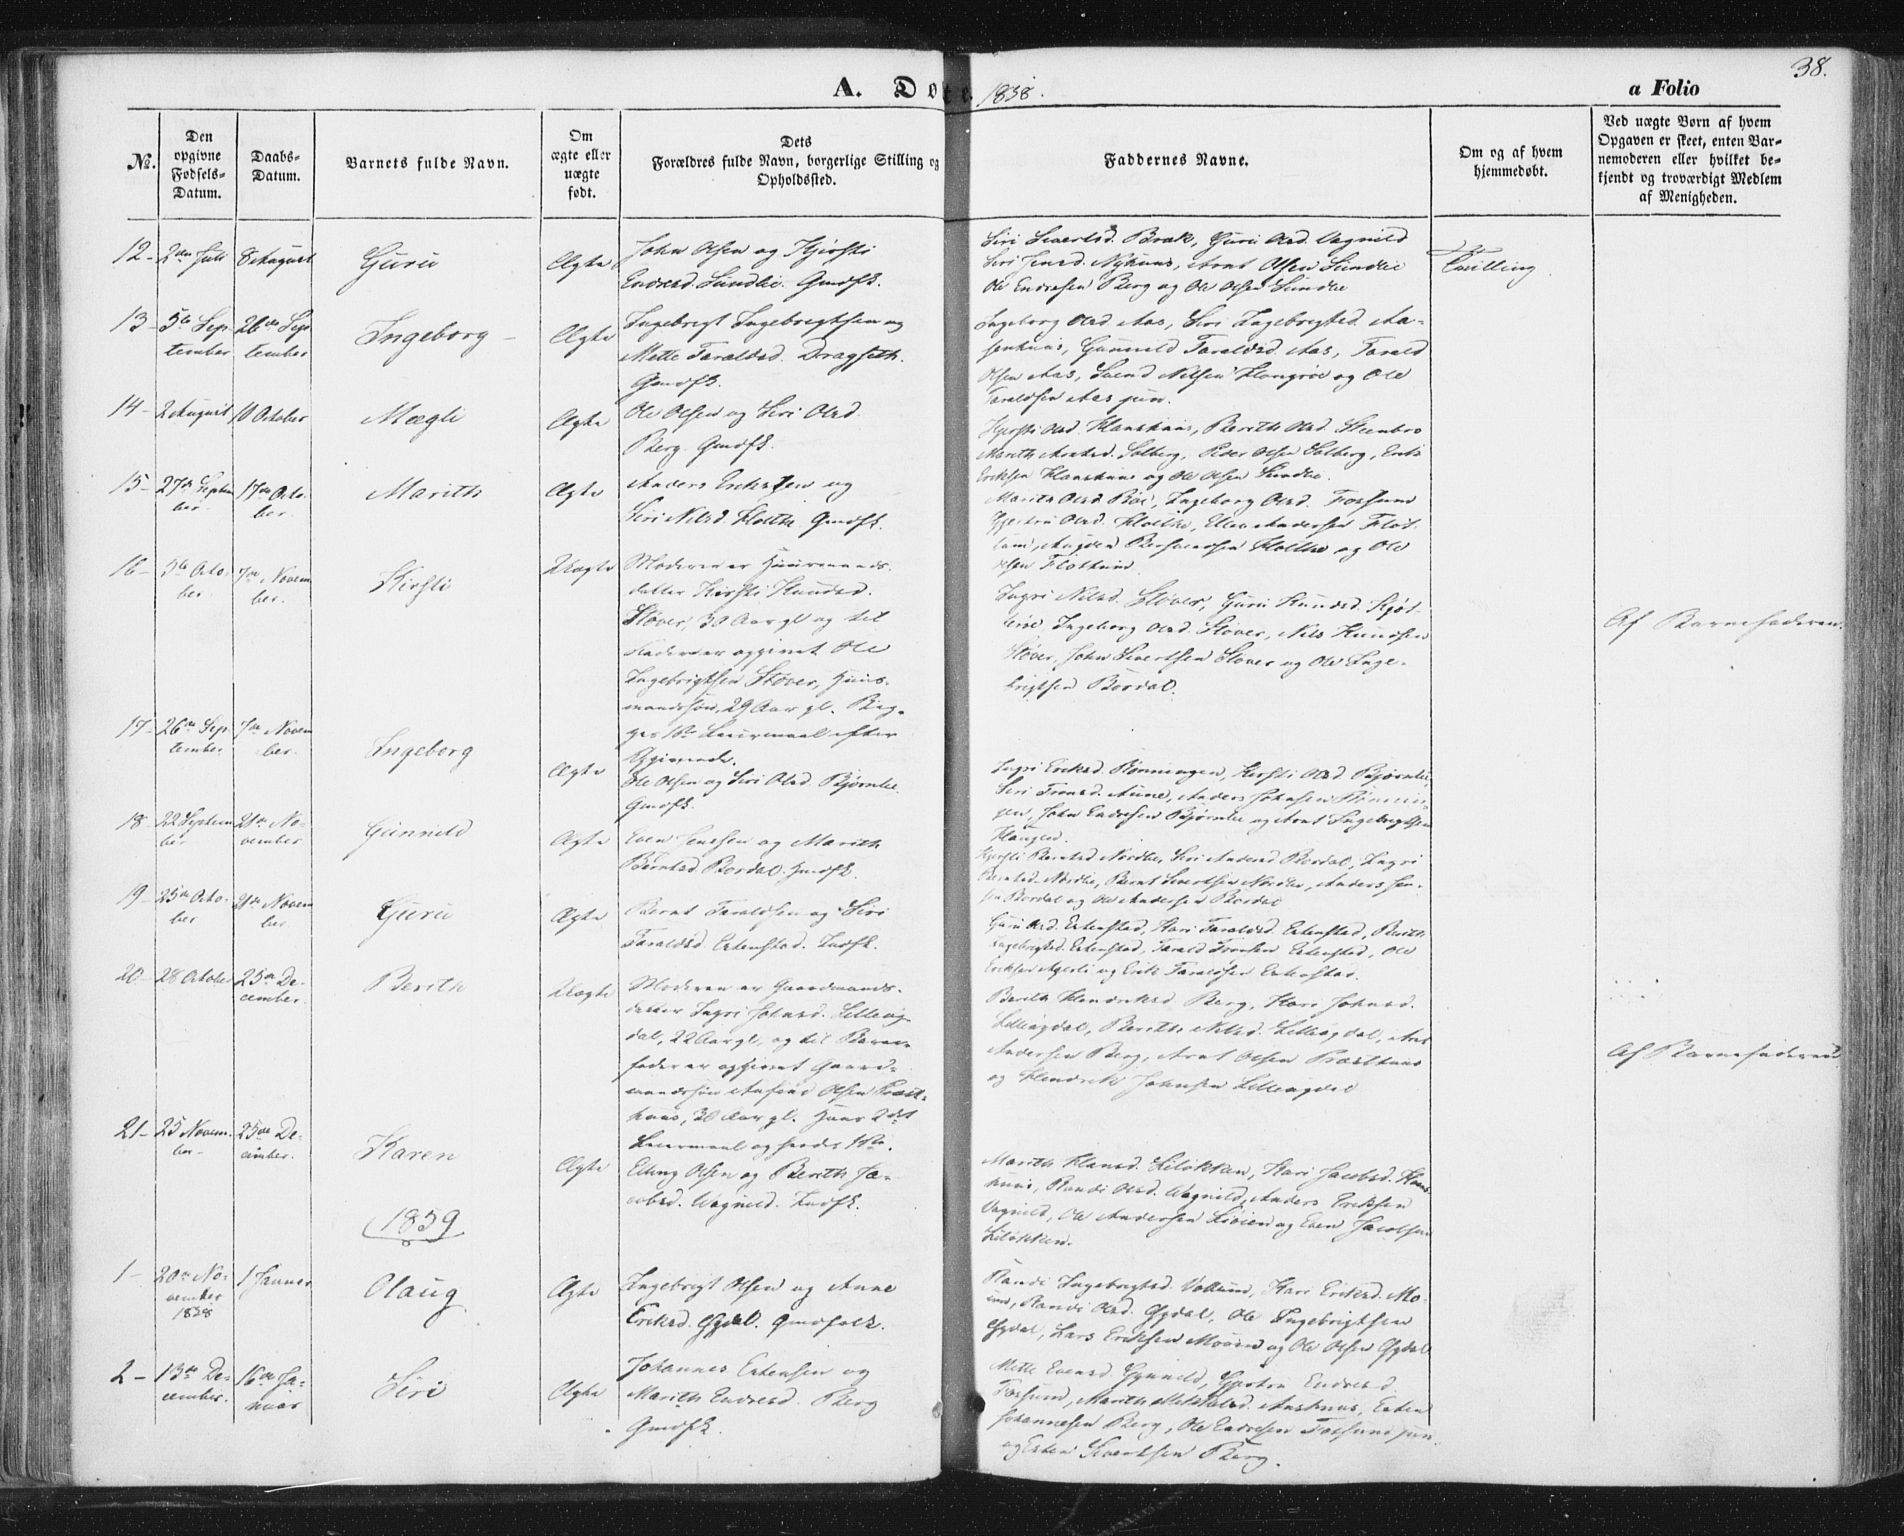 38.
A. Døte. 1838.
a Folio
No.
Den opgivne Fødsels-Datum.
Daabs-Datum.
Barnets fulde Navn.
Om ægte eller uægte født.
Dets Forældres fulde Navn, borgerlige Stilling og Opholdssted.
Faddernes Navne.
Om og af hvem hjemmedøbt.
Ved uægte Børn af hvem Opgaven er skeet, enten Barnemoderen eller hvilket bekjendt og troværdigt Medlem af Menigheden.
12 - 2den Juli 8 August Guru Ægte
John Olsen og Kjersti
Endresd. Sundlie. Gmdfk.
Siri Sivertsd. Brak, Guru Olsd. Vagnild
Siri Jensd. Nyhuus, Arnt Olsen Sundlie
Ole Endresen Berg og Ole Olsen Sundlie
Tvilling.
13 - 5te September 26de September Ingeborg - Ægte
Ingebrigt Ingebrigtsen og
Mette Taraldsd. Dragseth.
Gmdfk.
Ingeborg Olsd Aas, Siri Ingebrigtsd. Aa-
senhuus, Gunnild Taraldsd. Aas, Tarald
Olsen Aas, Svend Nilsen Haugrøe og Ole
Taraldsen Aas jun.
14 - 2 August 10 October Mægli Ægte
Ole Olsen og Siri Olsd.
Berg. Gmdfk.
Kjersti Olsd. Hanshuus, Berith Olsd. Steenbro
Marith Arntsd. Solberg, Peder Olsen Solberg, Erik
Eriksen Hanshuus og Ole Olsen Sundlie.
15 - 27de September 17de October Marith Ægte
Anders Ericksen og
Siri Nilsd. Holthe. Gmdfk.
Marith Olsd. Bøe, Ingeborg Olsd. Fossum
Gjertru Olsd. Holthe, Ellev Andersen Flot-
tum, Augden Berhaendsen Holthe og Ole
Olsen Flottum.
16 - 5te October 7de November Kirsti Uægte
Moderen er Huusmands-
datter Kirsti Knudsd.
Støver, 30 Aar gl og til
Fader er opgivet Ole
Ingebrigtsen Støver, Huus-
mandssøn, 29 Aar gl. Beg-
ges 1ste Leiermaal efter
Opgivende.
Ingri Nilsd. Støver, Guru Knudsd. Kjøt-
røe, Ingeborg Olsd. Støver, Nils Knudsen
Støver, John Sivertsen Støver og Ole Inge-
brigtsen Bordal.
Af Barnefaderen.
17 - 26de September 7de November Ingeborg Ægte
Ole Olsen og Siri Olsd. Bjørnlie.
Gmdfk.
Ingri Eriksd. Rønningen, Kirsti Olsd. Bjørnlie,
Siri Tronsd. Aune, Anders Johnsen Rønnin-
gen, John Endresen Bjørnlie og Arnt Ingebrigtsen
Hauglid.
18 - 22 September 21de November Gunnild Ægte
Even Jensen og Marith
Berntsd. Bordal. Gmdfk.
Kjersti Berntsd Nordlie, Siri Andersd. Bordal, Ingri
Berntsd. Nordlie, Bernt Sivertsen Nordlie, Anders Jen-
sen Bordal og Ole Andersen Bordal
19 - 25de October 21de November Guru Ægte
Bernt Taraldsen og Siri
Taraldsd. Estenstad. Indfk.
Guru Olsd. Estenstad, Kari Taraldsd. Estenstad, Berith
Ingebrigtsd. Estenstad, Tarald Tronsen Estenstad, Ole
Eriksen Agerli og Erik Taraldsen Estenstad.
20 - 28 October 25de December Berith Uægte
Moderen er Gaardmands-
datter Ingri Johnsd. Lilleng-
dal, 22 Aar gl, og til Barne-
fader er opgivet Gaard-
mandssøn Anfind Olsen Præst-
huus, 30 Aar gl. Hans 2det
Leiermaal og hendes 1ste.
Berith Hendriksd Berg, Kari Johnsd.
Lillengdal, Berith Nilsd. Lillengdal, Arnt
Andersen Berg, Arnt Olsen Præsthuus
og Hendrik Johnsen Lillengdal
Af Barnefaderen
21 - 25 November 25de December Karen Ægte
Elling Olsen og Berith Ja-
cobsd. Wagnild. Indfk.
Marith Hansd. Liløkken, Kari Jacobsd. Hans-
huus, Randi Olsd. Wagnild, Anders Eriksen
Vagnild, Ole Andersen Løvien og Even Jacobsen
Liløkken.
1839
1 - 20de November 1838 1 Januar Olaug Ægte
Ingebrigt Olsen og Anne
Eriksd. Øgdal. Gmdfolk.
Randi Ingebrigtsd. Vollum, Kari Eriksd. Mo-
um, Randi Olsd. Øgdal, Ole Ingebrigtsen
Øgdal, Lars Eriksen Mouen og Ole Olsen Øgdal
2 - 13de December. 16de Januar Siri Ægte
Johannes Estensen og
Marith Endresd. Berg
Gmdfk.
Mette Evensd. Gynnild, Gjertru Endresd
Fossum, Marith Mikkelsd. Aashuus, Esten
Johannesen Berg, Ole Endresen Fossum jun.
og Esten Sivertsen Berg.